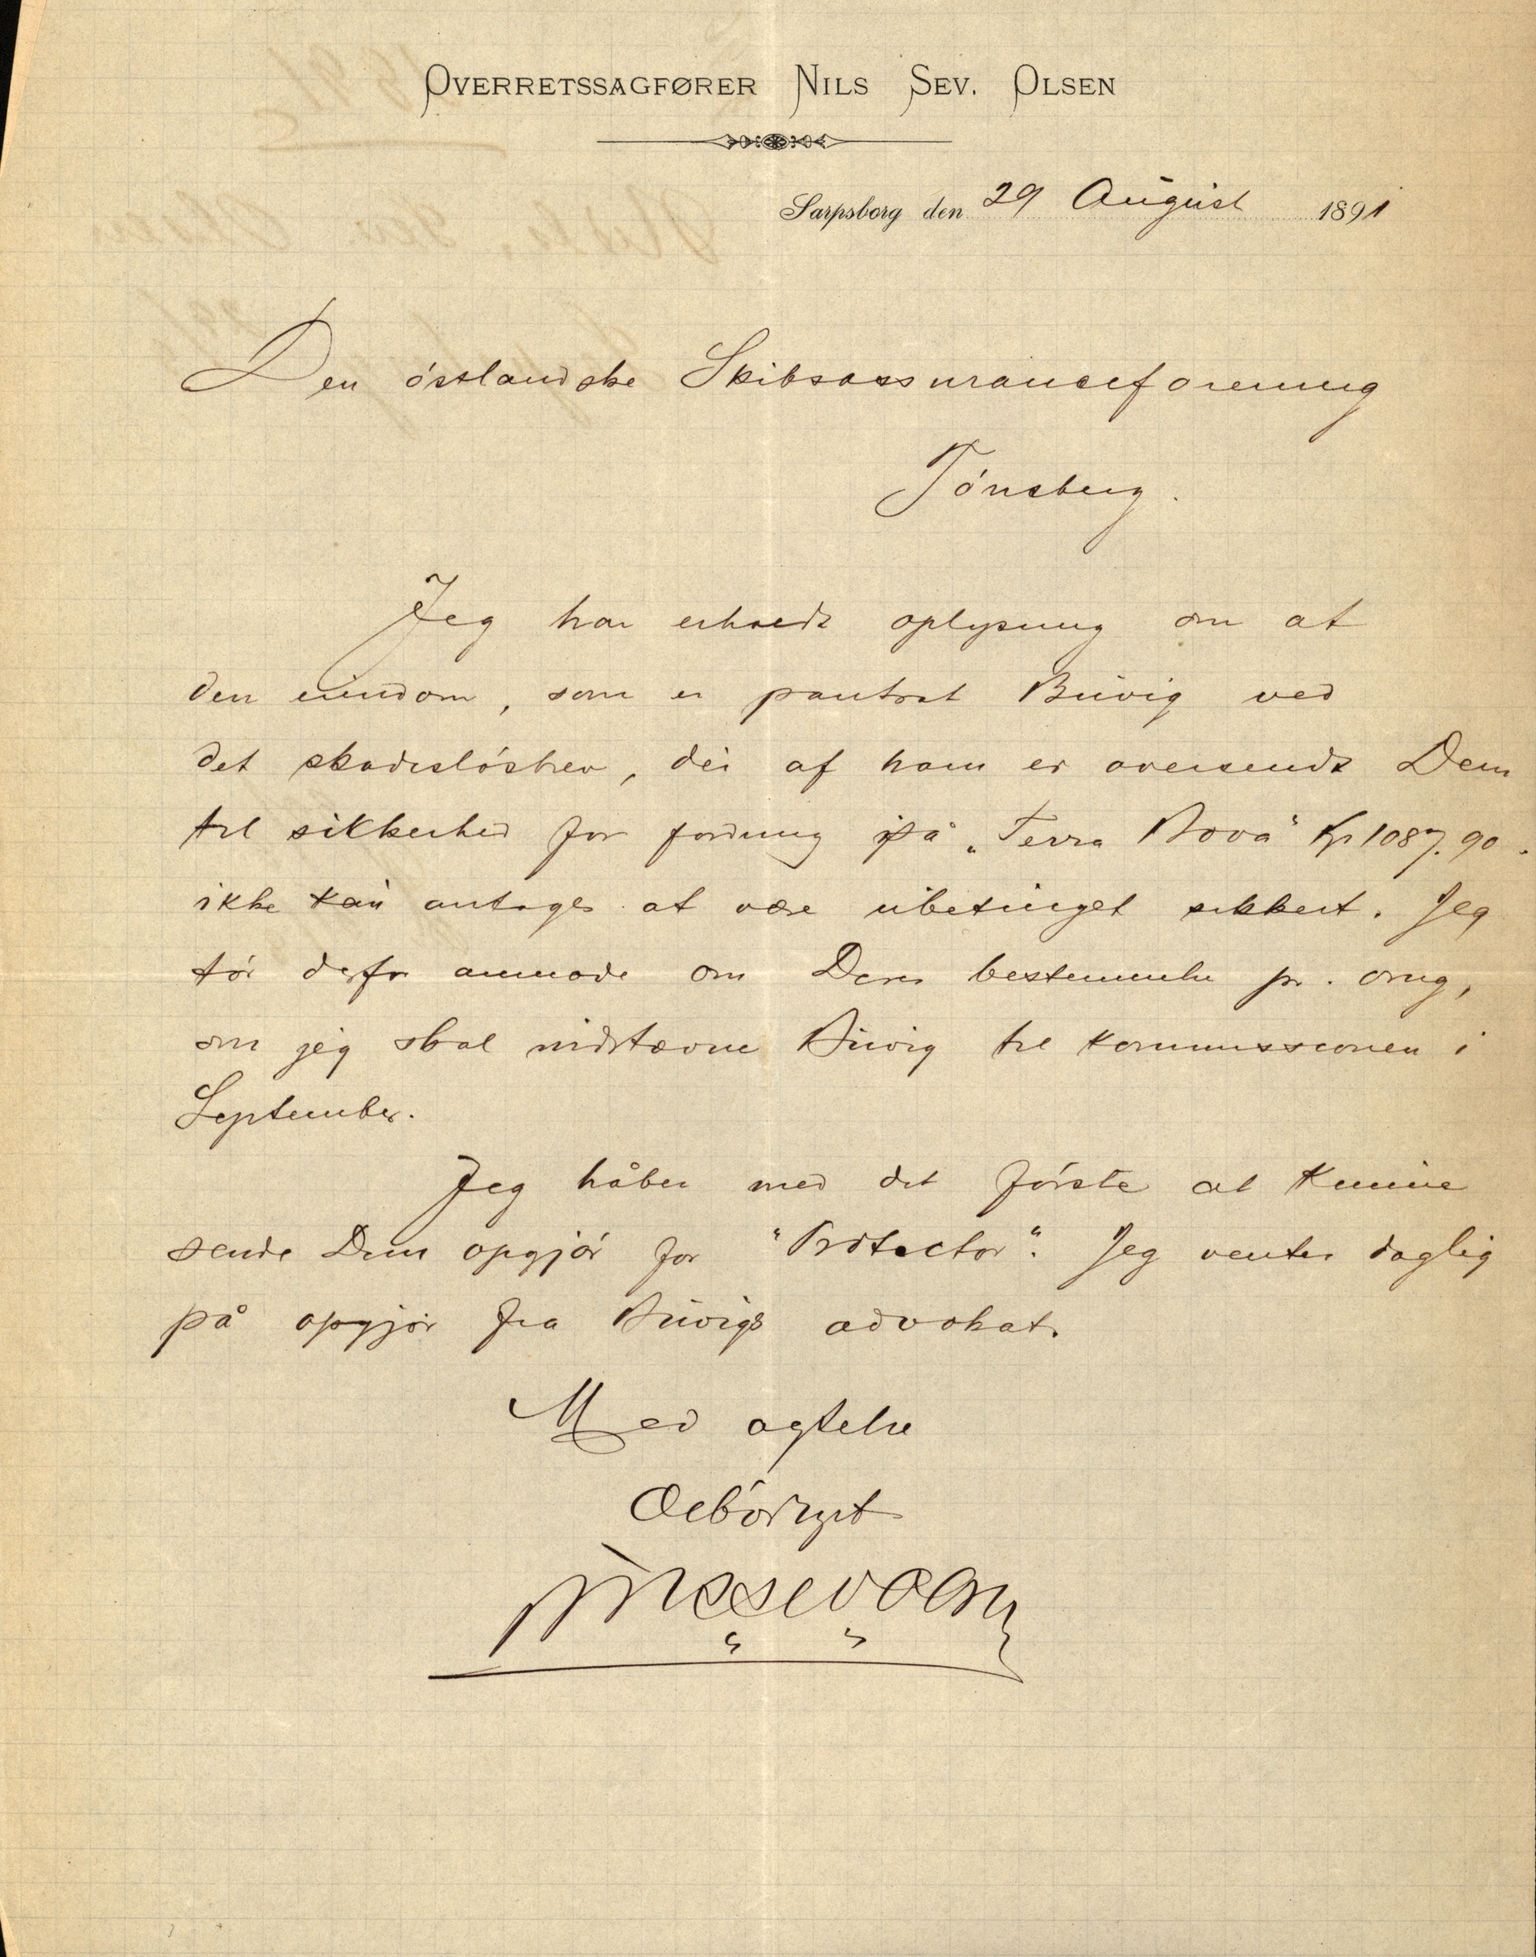 OVERRETSSAGFØRER NILS SEV. OLSEN
Sarpsborg den 29 August 1891
Den östlandske Skibsassuranceforening
Tönsberg.
Jeg har erholdt oplysning om at
den eiendom, som er pantsat Buvig ved
det skadeslösbrev, der af ham er oversendt Dem
til sikkerhed for fordring på "Terra Nova" Kr 1087.90.
ikke kan antages at være ubetinget sikkert. Jeg
tör derfor anmode om Deres bestemmelse pr. omg,
om jeg skal indstævne Buvig til kommissionen i
September.
Jeg håber med det förste at kunne
sende Dem opgjör for "Protector". Jeg venter daglig
på opgjör fra Buvigs advokat.
Med agtelse
Ærbödigst
Nils Sev Olsen